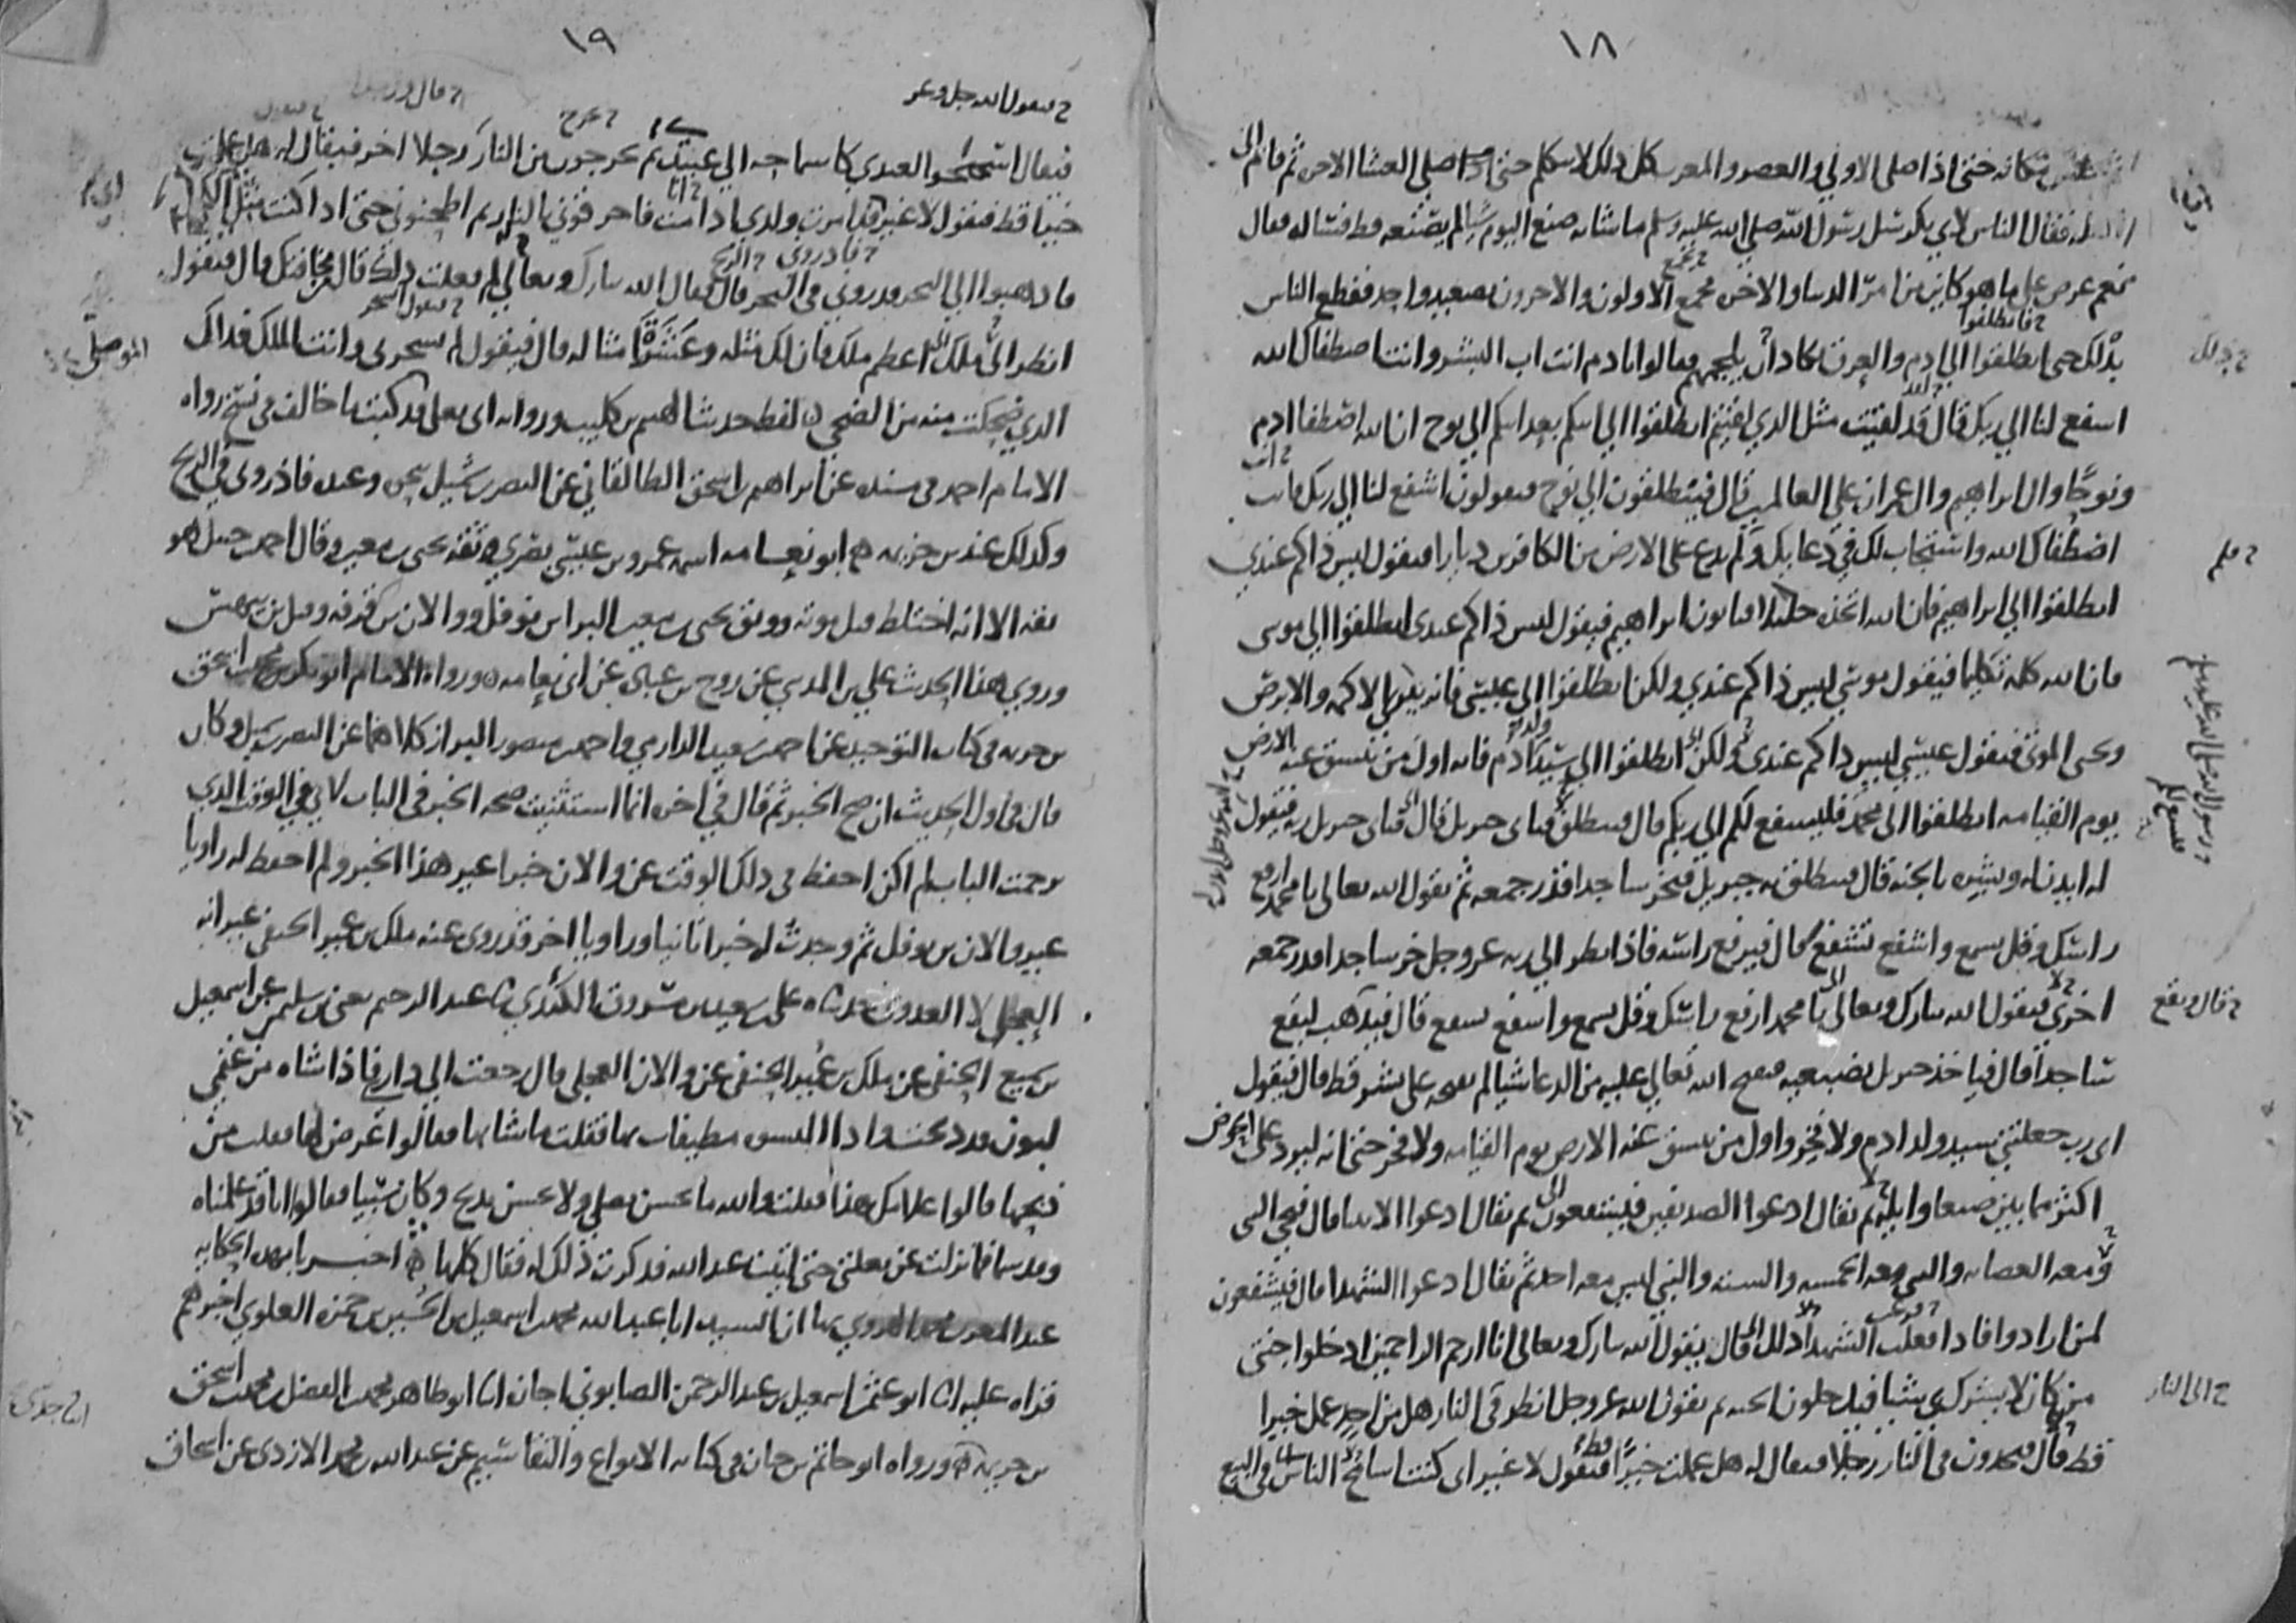 ١٨
جلس مكانه حتى اذا صلى الاولى والعصر والمغرب كل ذلك لا يتكلم حتى صلى العشا الاخره ثم قام الى
اهله فقال الناس لابي بكر سل رسول الله صلى الله عليه وسلم ما شانه صنع اليوم شيا لم يصنعه قط فساله فقال
نعم عرض علي ما هو كاين من امر الدنيا والاخره فجمع الاولون والاخرون بصعيد واحد ففظع الناس
بذلك حتى انطلقوا الى ادم والعرق كاد ان يلجمهم فقالوا يا ادم انت اب البشر وانت اصطفاك الله
اشفع لنا الى ربك قال قد لقيت مثل الذي لقيتم انطلقوا الى ابيكم بعد ابيكم الى نوح ان الله اصطفا ادم
ونوحا وال ابراهيم وال عمران على العالمين قال فينطلقون الى نوح فيقولون اشفع لنا الى ربك فانت
اصطفاك الله واستجاب لك في دعايك ولم يدع على الارض من الكافرين ديارا فيقول ليس ذاكم عندي
انطلقوا الى ابراهيم فان الله اتخذه خليلا فياتون ابراهيم فيقول ليس ذاكم عندي انطلقوا الى موسى
فان الله كلمه تكليما فيقول موسى ليس ذاكم عندي ولكن انطلقوا الى عيسى فانه يبرئ الاكمه والابرص
ويحيى الموتى فيقول عيسى ليس ذاكم عندي ولكن انطلقوا الى سيد ولد ادم فانه اول من تنشق عنه الارض
يوم القيامه انطلقوا الى محمد فليشفع لكم الى ربكم قال فينطلق فياتي جبريل قال فياتي جبريل ربه فيقول
له ايذن له وبشره بالجنه قال فينطلق به جبريل فيخر ساجدا قدر جمعه ثم يقول الله تعالى يا محمد ارفع
راسك وقل يسمع واشفع تشفع قال فيرفع راسه فاذا نظر الى ربه عز وجل خر ساجدا قدر جمعه
اخرى فيقول الله تبارك وتعالى يا محمد ارفع راسك وقل يسمع واشفع تشفع قال فيذهب ليقع
ساجدا قال فياخذ جبريل بضبعيه فيفتح الله تعالى عليه من الدعا شيا لم يفتحه على بشر قط قال فيقول
اي رب جعلتني سيد ولد ادم ولا فخر واول من تنشق عنه الارض يوم القيامه ولا فخر حتى انه ليرد علي الحوض
اكثر مما بين صنعا وايله ثم يقال ادعوا الصديقين فيشفعون ثم يقال ادعوا الانبيا قال فيجي النبي
ومعه العصابه والنبي معه الخمسه والسته والنبي ليس معه احد ثم يقال ادعوا الشهدا قال فيشفعون
لمن ارادوا فاذا فعلت الشهدا ذلك قال يقول الله تبارك وتعالى انا ارحم الراحمين ادخلوا جنتي
من كان لا يشرك بي شيا فيدخلون الجنه ثم يقول الله عز وجل انظروا في النار هل من احد عمل خيرا
قط قال فيجدون في النار رجلا فيقال له هل عملت خيرا قط فيقول لا غير اني كنت اسامح الناس في البيع
ح فانطلقوا
ح بذلك
ح قال ويقع
ح الى النار
١٩
ح فيقول الله جل وعز
فيقال اسمحوا لعبدي كاسماحه الى عبيدي ثم يخرجون من النار رجلا اخر فيقال له هل عملت
خيرا قط فيقول لا غير اني قد امرت ولدي اذا مت فاحرقوني بالنار ثم اطحنوني حتى اذا كنت مثل الكحل
فاذهبوا الى البحر فذروني في البحر قال فقال الله تبارك وتعالى لم فعلت ذلك قال من مخافتك قال فيقول
انظر الى ملك اعظم ملك فان لك مثله وعشرة امثاله قال فيقول لم تسخر بي وانت الملك فذاك
الذي ضحكت منه من الضحى لفظ حديثنا الهيثم بن كليب وروايه ابي يعلى قد كتبت ما خالف في نسخ رواه
الامام احمد في مسنده عن ابراهيم بن اسحق الطالقاني عن النضر بن شميل بنحوه وعنده فاذروني في الريح
وكذلك عند بن خزيمه ابو نعامه اسمه عمرو بن عيسى بصري ثقه يحيى بن معين وقال احمد بن حنبل هو
ثقه الا انه اختلط قبل موته ووثق يحيى بن معين البرا بن نوفل ووالان بن قرفه وقيل بن بيهس
وروى هذا الحديث علي بن المديني عن روح بن عباده عن ابي نعامه ورواه الامام ابو بكر محمد بن اسحق
بن خزيمه في كتاب التوحيد عن احمد بن سعيد الدارمي واحمد بن منصور البزاز كلاهما عن النضر بن شميل وكان
قال في اول الحديث ان صح الخبر ثم قال في اخره انما استثنيت صحه الخبر في الباب لاني في الوقت الذي
ترجمت الباب لم اكن احفظ في ذلك الوقت عن والان خبرا غير هذا الخبر ولم احفظ له راويا
غير والان بن نوفل ثم وجدت له خبرا ثانيا وراويا اخر قد روى عنه ملك بن عمير الحنفي غير انه
العجلي لا العدوي حدثناه علي بن سعيد بن مسروق الكندي ثنا عبد الرحيم يعني بن سليمن عن اسمعيل
بن سميع الحنفي عن ملك بن عمير الحنفي عن والان العجلي قال رجعت الى داري فاذا شاه من غنمي
لبون قد ذبحت واذا اليسوس مطيفات بها فقلت ما شانها فقالوا عرض لها فقلت من
ذبحها قالوا غلامك هذا فقلت والله ما يحسن يصلي ولا يحسن يذبح وكان سبيا فقالوا انا قد علمناه
وقد سما فما نزلت عن بغلتي حتى اتيت عبد الله فذكرت ذلك له فقال كلها اخبرنا بهذه الحكايه
عبد المعز بن محمد الهروي بها ان السيد ابا عبد الله محمد بن اسمعيل بن الحسين بن حمزه العلوي اخبرهم
قراه عليه انا ابو عثمن اسمعيل بن عبد الرحمن الصابوني اجازه انا ابو طاهر محمد بن الفضل بن محمد بن اسحق
بن خزيمه ورواه ابو حاتم بن حبان في كتابه الانواع والتقاسيم عن عبد الله بن محمد الازدي عن اسحاق
ح الريح
الموصلي
انا جدي